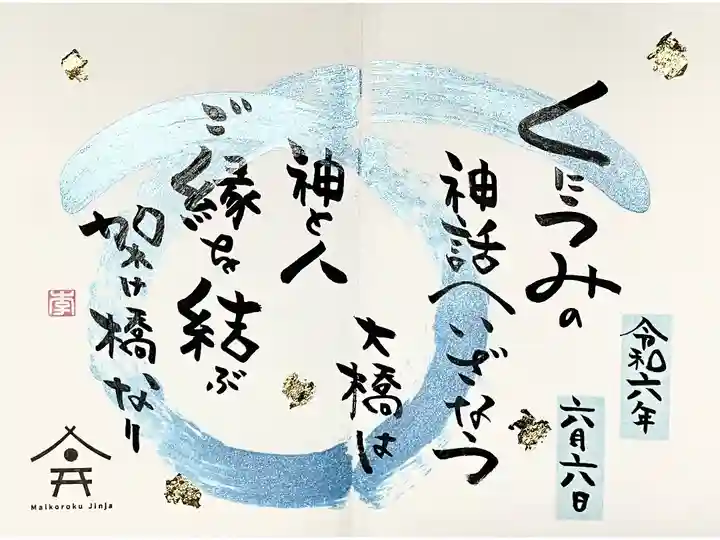 くにうみの
神話へいざなう
大橋は
神と人
ご縁を結ぶ
架け橋なり
令和六年
六月六日
李
Maikoroku Jinja